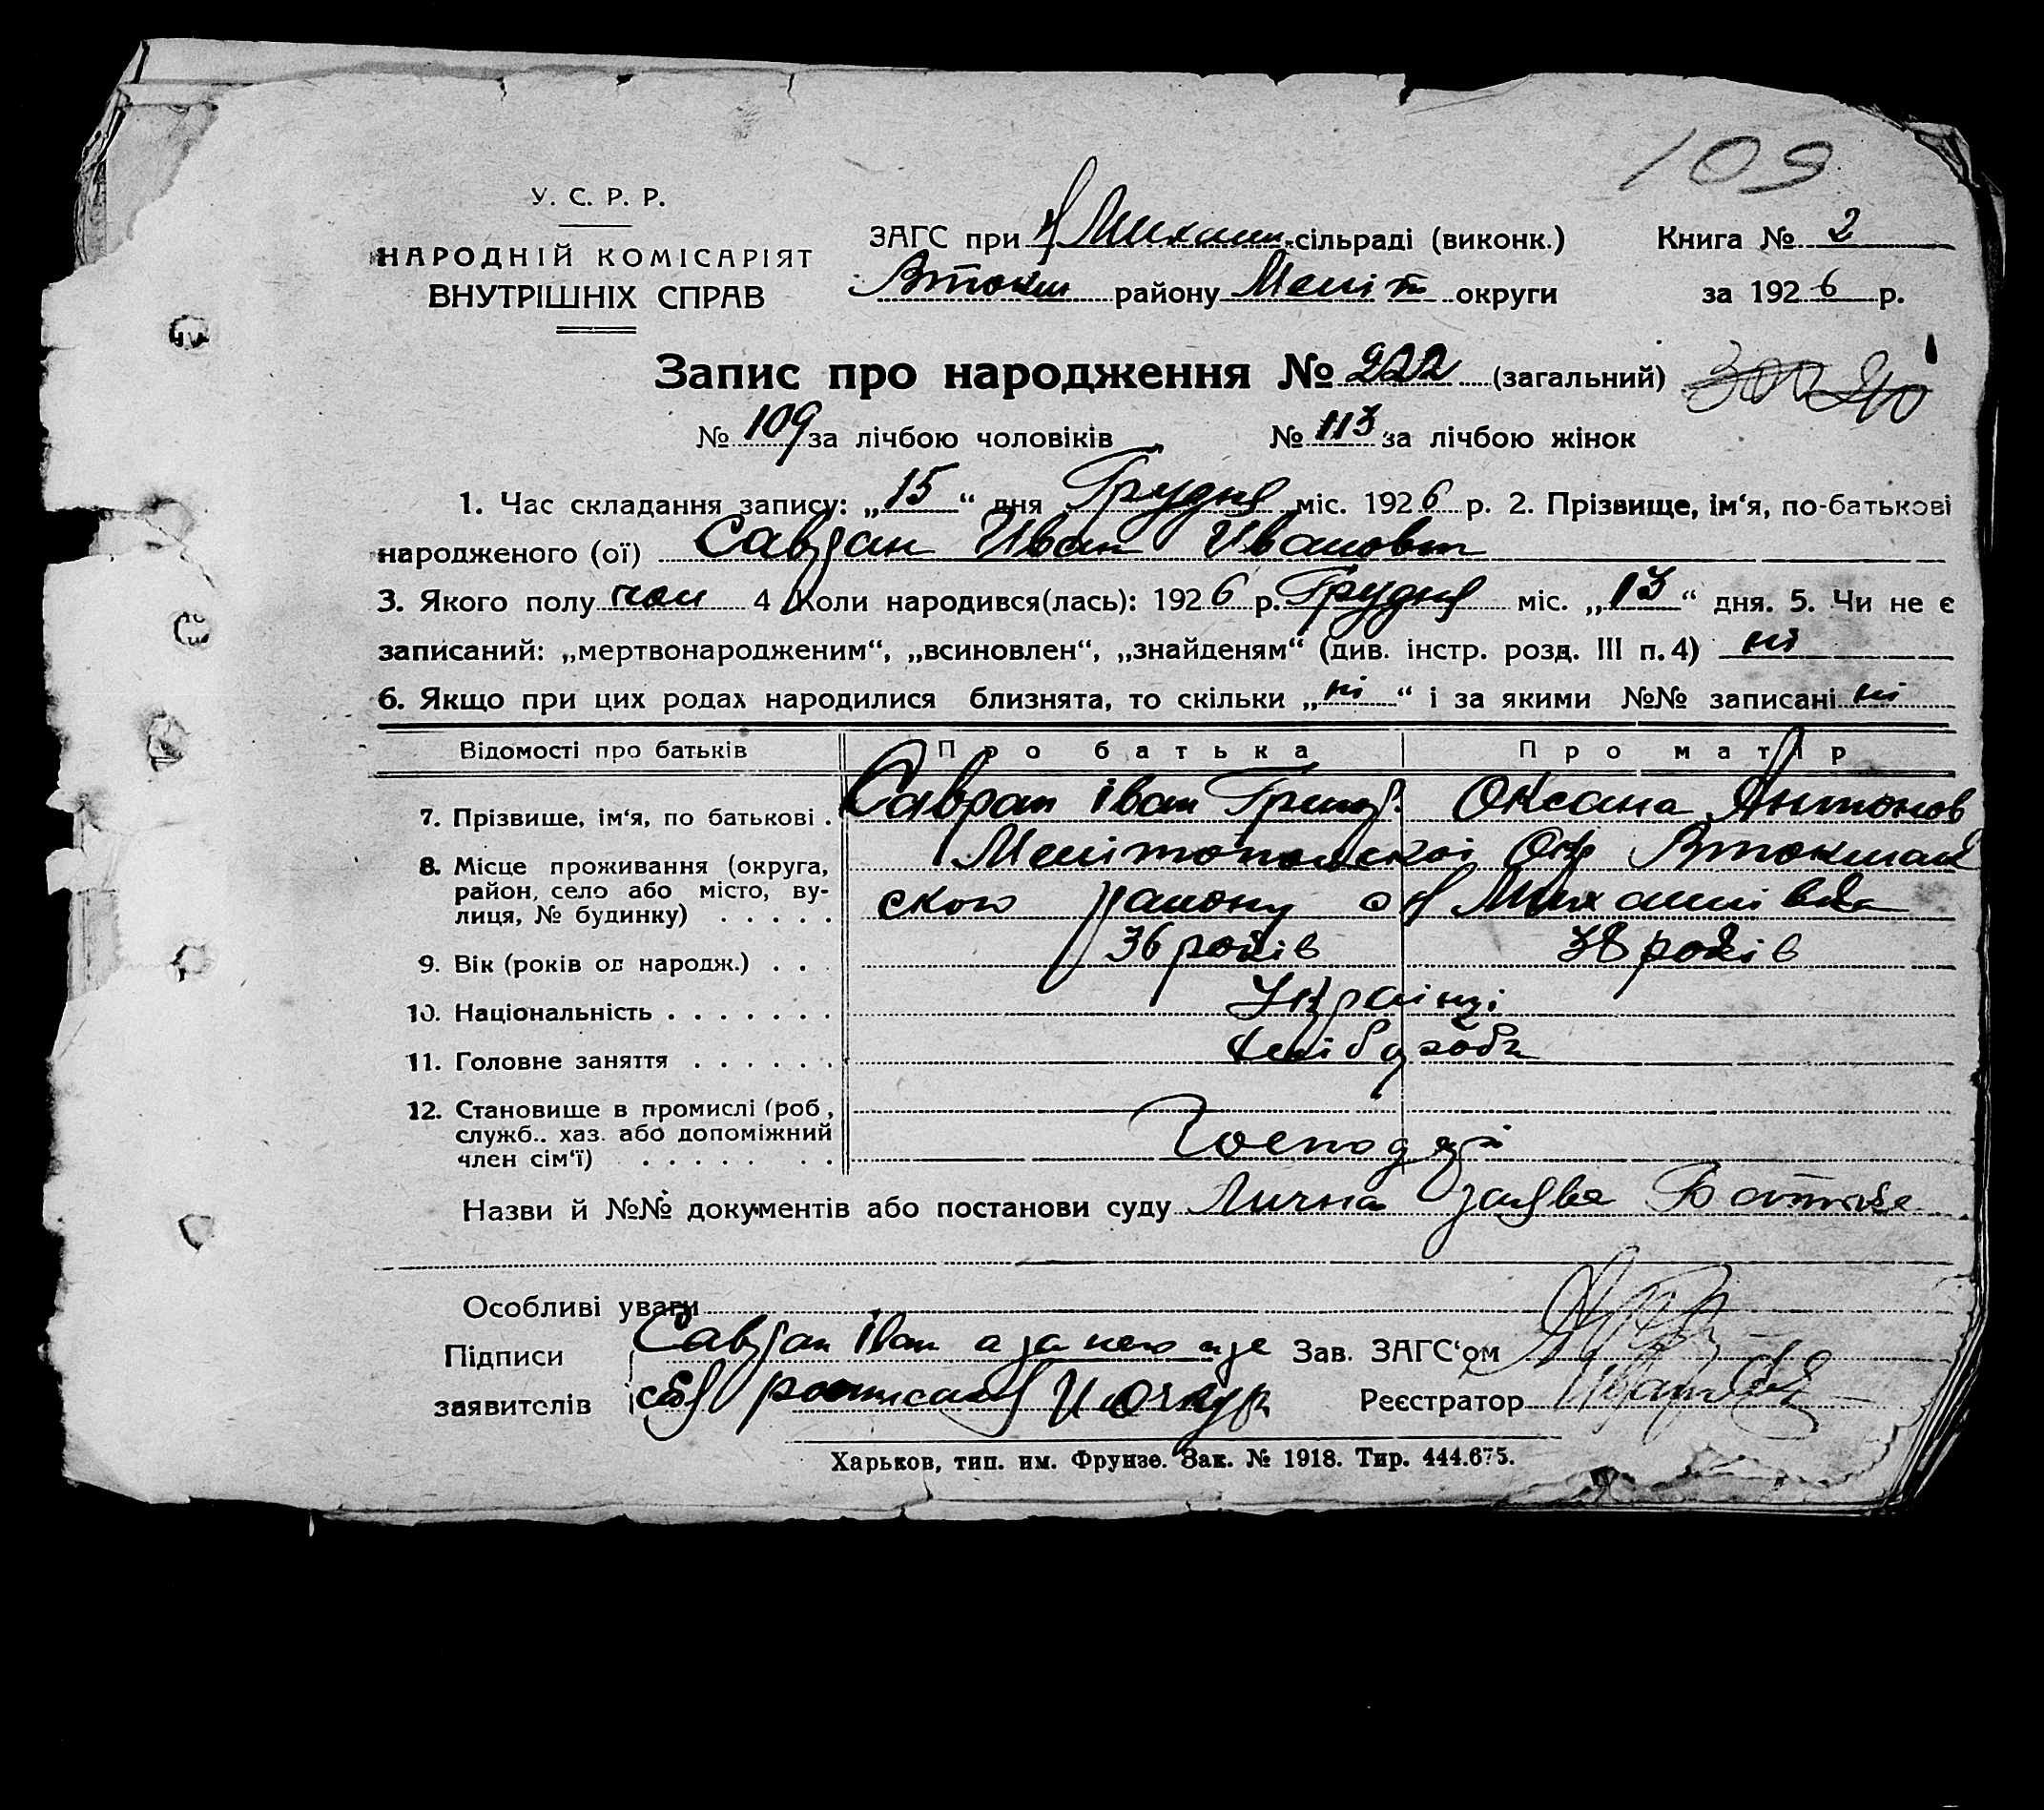 109
У. С. Р. Р.
НАРОДНІЙ КОМІСАРІЯТ
ВНУТРІШНІХ СПРАВ
ЗАГС при Михайл. сільраді (виконк.) Книга № 2
Втокм району Меліт округи за 1926 р.
Запис про народження № 222 (загальний)
№ 109 за лічбою чоловіків № 113 за лічбою жінок
1. Час складання запису: „15“ дня Грудня міс. 1926 р. 2. Прізвище, ім‘я, по-батькові
народженого (ої) Савран Иван Иванович
3. Якого полу чол 4 Коли народився(лась): 1926 р. Грудня міс. „13“ дня. 5. Чи не є
записаний: „мертвонародженим“, „всиновлен“, „знайденям“ (див. інстр. розд. III п. 4) ні
6. Якщо при цих родах народилися близнята, то скільки „ні“ і за якими №№ записані ні
Відомості про батьків Про батька Про матір
7. Прізвище, ім‘я, по батькові . Савран Іван Григ. Оксана Антонов
8. Місце проживання (округа, Мелітопольскоі Окр Втокмаць
район, село або місто, ву- ского району с Михайлівка
лиця, № будинку) . . . . .
9. Вік (років од народж.) . . . 36 років 38 років
10. Національність . . . . . . . Українці
11. Головне заняття . . . . . . Хліборобн
12. Становище в промислі (роб,
служб.. хаз. або допоміжний Господарі
член сім‘ї) . . . . . . .
Назви й №№ документів або постанови суду Лична заява Батька
Особливі уваги
Підписи Савран Іван а за него Зав. ЗАГС‘ом
заявителів росписався Реєстратор
Харьков, тип. им. Фрунзе. Зак. № 1918. Тир. 444.675.